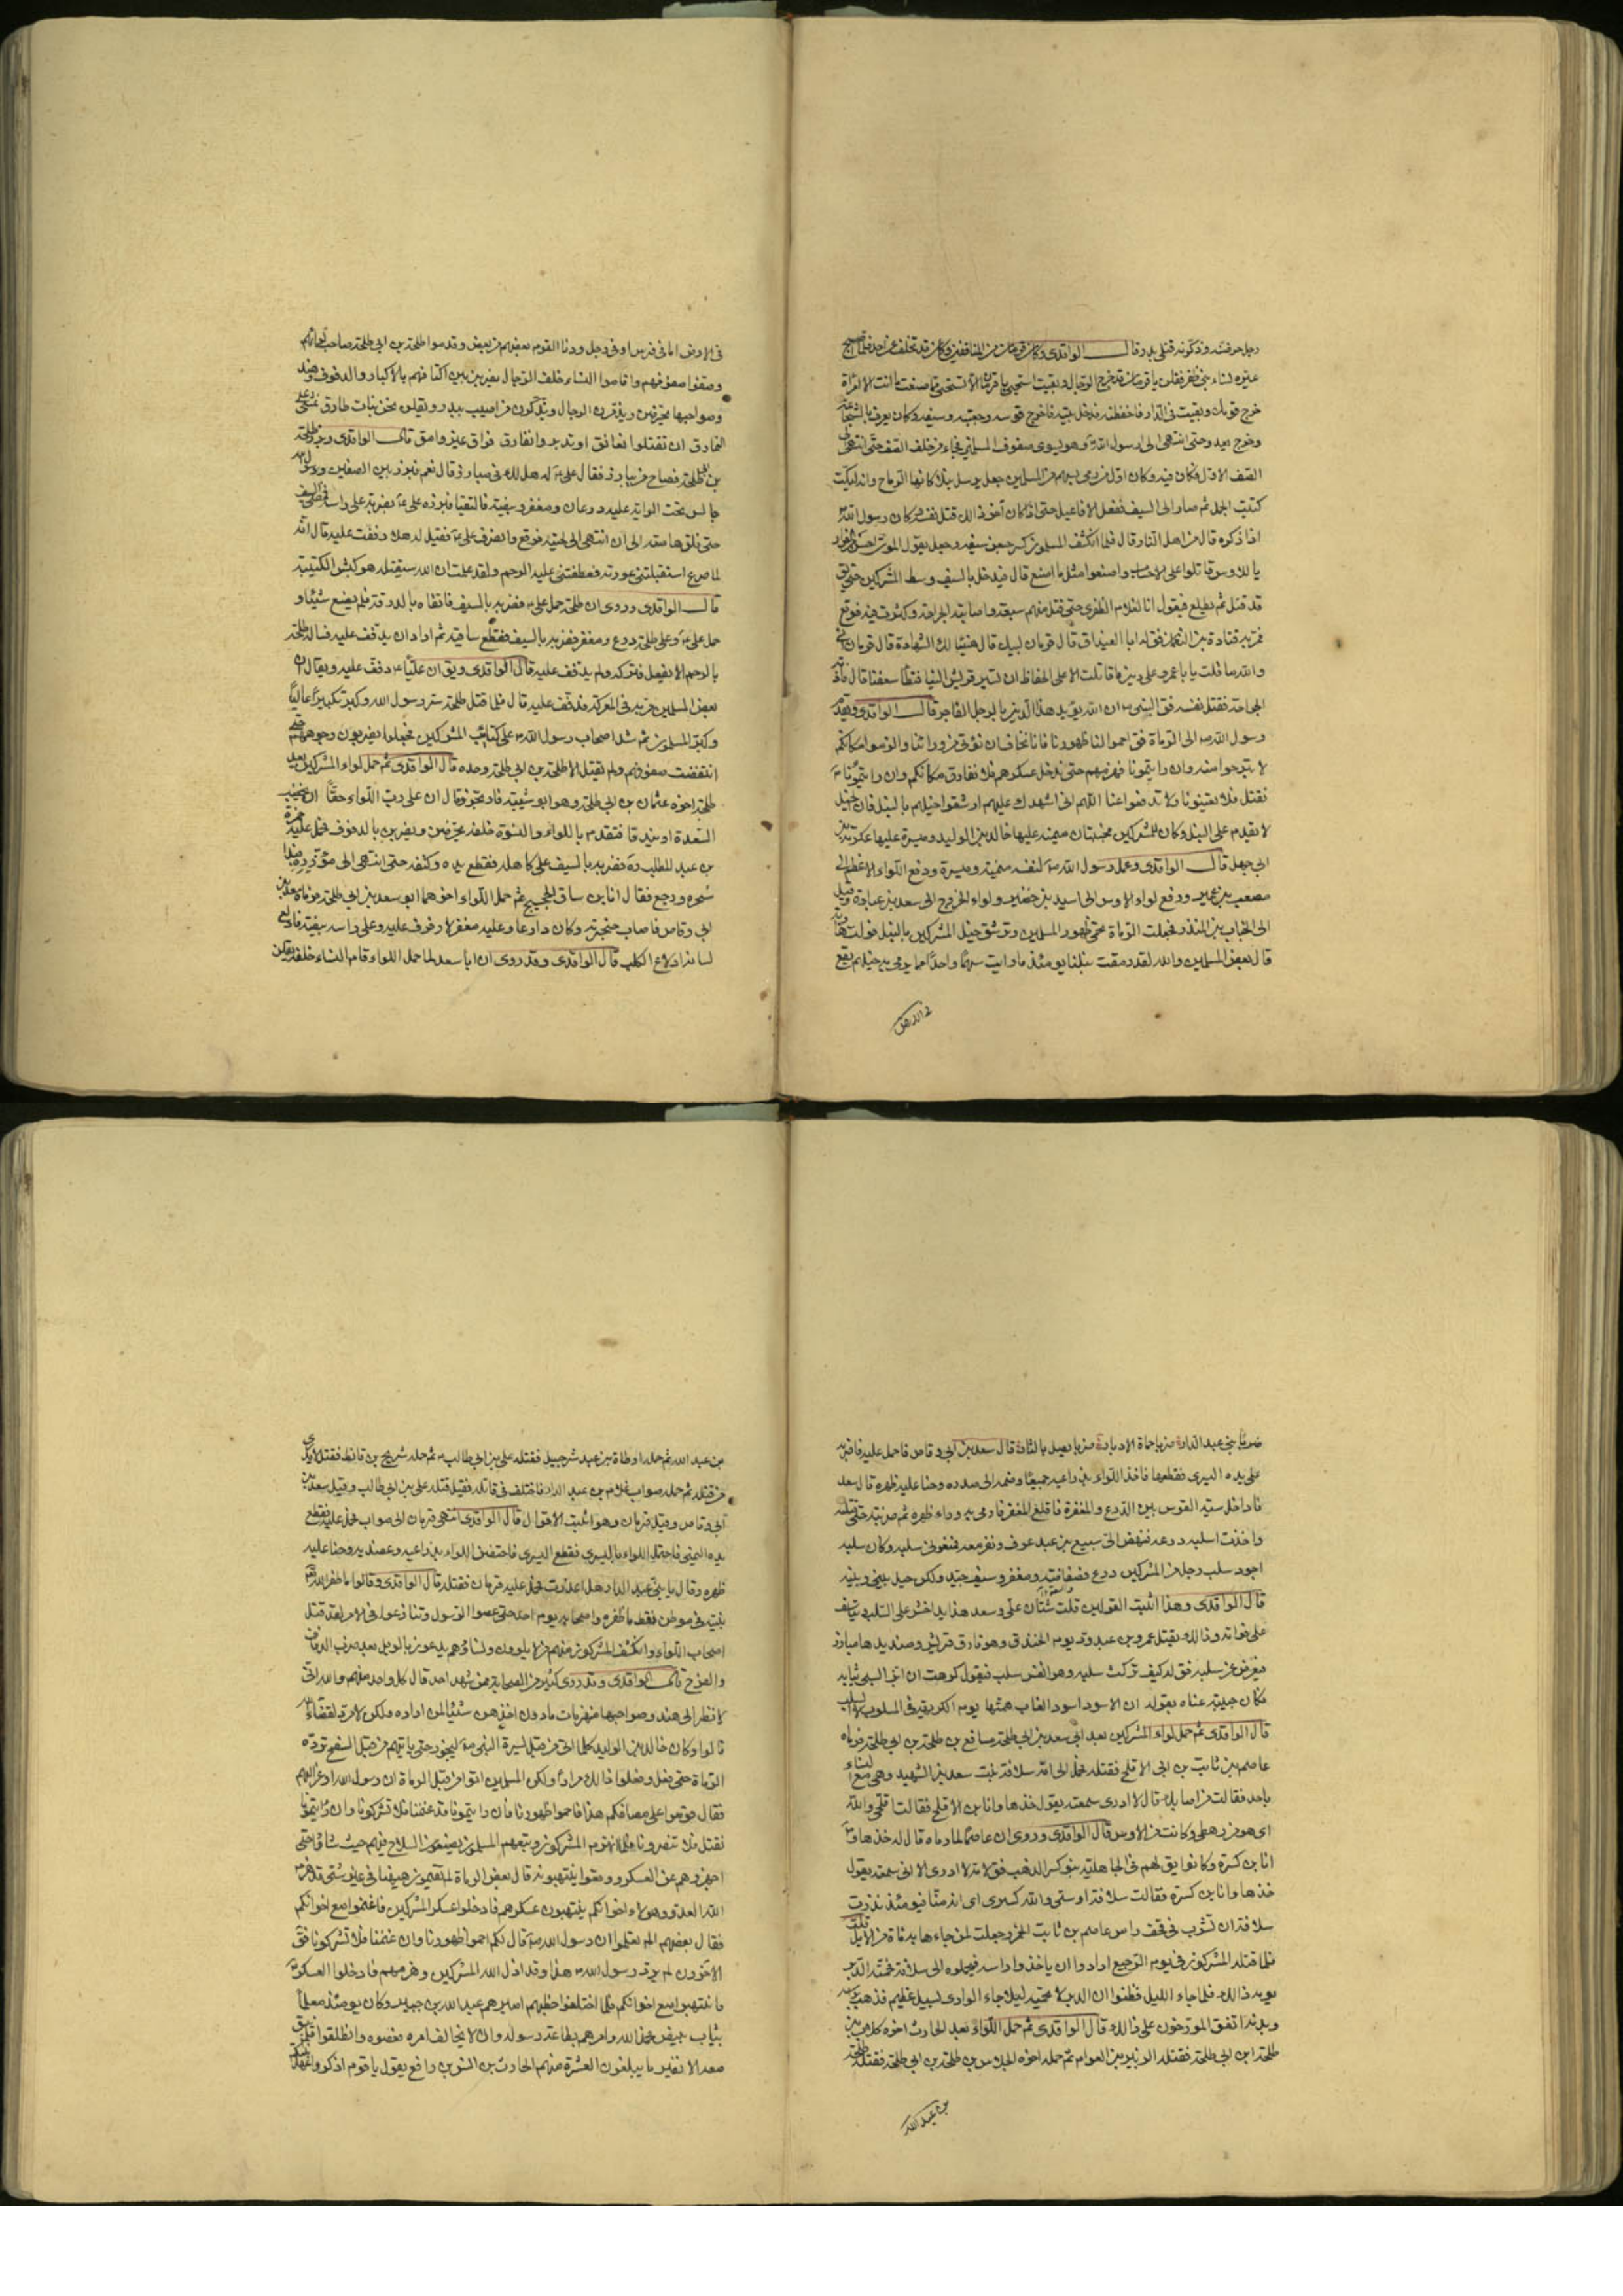 رجل حرضته وذكرته قتلى بدر قال الواقدى وكان قزمان من المنافقين وكان قد تخلف عن احد فلما اصبح
عيره نساء بنى ظفر فقلن يا قزمان قد خرج الرجال وبقيت استحيى يا قزمان الا تستحيى مما صنعت ما انت الا امرأة
خرج قومك وبقيت فى الدار فاحفظنه فدخل بيته فاخرج قوسه وجعبته وسيفه وكان يعرف بالشجاعة
وخرج يعدو حتى انتهى الى رسول الله وهو يسوى صفوف المسلمين فجاء من خلف الصف حتى انتهى الى
الصف الاول فكان فيه وكان اول من رمى بسهم من المسلمين جعل يرسل نبلا كانها الرماح وانه ليكت
كتيت الجمل ثم صار الى السيف ففعل الافاعيل حتى اذا كان آخر ذلك قتل نفسه وكان رسول الله
اذا ذكره قال من اهل النار قال فلما انكشف المسلمون كسر جفن سيفه وجعل يقول الموت احسن من الفرار
يا للاوس قاتلوا على الاحساب واصنعوا مثل ما اصنع قال فيدخل بالسيف وسط المشركين حتى يق
قد قتل ثم يطلع فيقول انا الغلام الظفرى حتى قتل منهم سبعة واصابته الجراحة وكثرت فيه فوقع
فمر به قتادة بن النعمان فق له ابا الغيداق قال قزمان لبيك قال هنيئا لك الشهادة قال قزمان انى
والله ما قاتلت يا با عمرو على دين ما قاتلت الا على الحفاظ ان تسير قريش الينا فتطأ سعفنا قال فاذته
الجراحة فقتل نفسه فق النبى ان الله يؤيد هذا الدين بالرجل الفاجر قال الواقدى وتقدم
رسول الله الى الرماة فق احموا لنا ظهورنا فانا نخاف ان نؤتى من ورائنا والزموا مكانكم
لا تبرحوا منه وان رايتمونا نهزمهم حتى ندخل عسكرهم فلا تفارقوا مكانكم وان رايتمونا
نقتل فلا تعينونا ولا تدفعوا عنا اللهم انى اشهدك عليهم ارشقوا خيلهم بالنبل فان الخيل
لا تقدم على النبل وكان للمشركين مجنبتان ميمنة عليها خالد بن الوليد وميسرة عليها عكرمة بن
ابى جهل قال الواقدى وعمل رسول الله لنفسه ميمنة وميسرة ودفع اللواء الاعظم الى
مصعب بن عمير ودفع لواء الاوس الى اسيد بن حضير ولواء الخزرج الى سعد بن عبادة وقيل
الى الحباب بن المنذر فجعلت الرماة تحمى ظهور المسلمين وترشق خيل المشركين بالنبل فولت هاربة
قال بعض المسلمين والله لقد رمقت نبلنا يومئذ ما رايت سهما واحدا مما يرمى به خيلهم يقع
فى الارض اما فى فرس او فى رجل ودنا القوم بعضهم من بعض وقدموا طلحة بن ابى طلحة صاحب لوائهم
وصفوا صفوفهم واقاموا النساء خلف الرجال يضربن بين اكتافهم بالاكبار والدفوف وهند
وصواحبها يحرضن ويذمرن الرجال ويذكرن من اصيب ببدر ويقلن نحن بنات طارق نمشى على
النمارق ان تقبلوا نعانق او تدبروا نفارق فراق غير وامق قال الواقدى وبرز طلحة
بن ابى طلحة فصاح من يبارز فقال على له هل لك فى مبارزتى قال نعم فبرز بين الصفين ورسول الله
جالس تحت الراية عليه درعان ومغفر وبيضة فالتقيا فبدره على بضربة على راسه فمضى السيف
حتى فلق هامته الى ان انتهى الى لحيته فوقع وانصرف على فقيل له هلا دففت عليه قال انه
لما صرع استقبلتنى عورته فعطفتنى عليه الرحم ولقد علمت ان الله سيقتله هو كبش الكتيبة
قال الواقدى وروى ان طلحة حمل على على فضربه بالسيف فاتقاه بالدرقة فلم يصنع شيئا و
حمل على وعلى طلحة درع ومغفر فضربه بالسيف فقطع ساقيه ثم اراد ان يدفف عليه فساله طلحة
بالرحم الا يفعل فتركه ولم يدفف عليه قال الواقدى ويق ان عليا دفف عليه ويقال ان
بعض المسلمين مر به فى المعركة فدفف عليه قال فلما قتل طلحة سر رسول الله وكبر تكبيرا عاليا
وكبر المسلمون ثم شد اصحاب رسول الله على كتائب المشركين فجعلوا يضربون وجوههم حتى
انتقضت صفوفهم ولم يقتل الا طلحة بن ابى طلحة وحده قال الواقدى ثم حمل لواء المشركين بعد
طلحة اخوه عثمان بن ابى طلحة وهو ابو شيبة فارتجز وقال ان على رب اللواء حقا ان تخضب
الصعدة او تندقا فتقدم باللواء والنسوة خلفه يحرضن ويضربن بالدفوف فحمل عليه حمزة
بن عبد المطلب ره فضربه بالسيف على كاهله فقطع يده وكتفه حتى انتهى الى مؤتزره فبدا
سحره ورجع فقال انا ابن ساقى الحجيج ثم حمل اللواء اخوهما ابو سعد بن ابى طلحة فرماه سعد بن
ابى وقاص فاصاب حنجرته وكان دارعا وعليه مغفر لا رفرف عليه وعلى راسه بيضة فادلع
لسانه ادلاع الكلب قال الواقدى وقد روى ان ابا سعد لما حمل اللواء قام النساء خلفه يقلن
ضربا بنى عبد الدار ضربا حماة الادبار ضربا بكل بتار قال سعد بن ابى وقاص فاحمل عليه فاضربه
على يده اليسرى فقطعها فاخذ اللواء بذراعيه جميعا وضمه الى صدره وحنا عليه ظهره قال سعد
فادخل سية القوس بين الدرع والمغفرة فاقلع المغفر فارمى به وراء ظهره ثم ضربته حتى قتلته
واخذت اسلبه درعه فنهض الى سبيع بن عبد عوف ونفر معه فمنعونى سلبه وكان سلبه
اجود سلب رجل من المشركين درع فضفاضة ومغفر وسيف جيد ولكن حيل بينى وبينه
قال الواقدى وهذا اثبت القولين قلت شتان على وسعد هذا يجاحش على السلب ويتاسف
على فواته وذاك يقتل عمرو بن عبد ود يوم الخندق وهو فارس قريش وصنديدها مبارزة
فيعرض عن سلبه فق له كيف تركت سلبه وهو انفس سلب فيقول كرهت ان ابز السبى ثيابه
فكان حبيبا عناه بقوله ان الاسود اسود الغاب همتها يوم الكريهة فى المسلوب لا السلب
قال الواقدى ثم حمل لواء المشركين بعد ابى سعد بن ابى طلحة مسافع بن طلحة بن ابى طلحة فرماه
عاصم بن ثابت بن ابى الاقلح فقتله فحمل الى امه سلافة بنت سعد بن الشهيد وهى مع النساء
باحد فقالت من اصابك قال لا ادرى سمعته يقول خذها وانا بن الاقلح فقالت اقلحى والله
اى هو من رهطى وكانت من الاوس قال الواقدى وروى ان عاصما لما رماه قال له خذها و
انا بن كسرة وكانوا يق لهم فى الجاهلية بنو كسر الذهب فق لامه لا ادرى الا انى سمعته يقول
خذها وانا بن كسرة فقالت سلافة اوسى والله كسرى اى انه منا فيومئذ نذرت
سلافة ان تشرب فى قحف راس عاصم بن ثابت الخمر وجعلت لمن جاءها به مائة من الابل قلت
فلما قتله المشركون فى يوم الرجيع ارادوا ان ياخذوا راسه فيحملوه الى سلافة فحمته الدبر
يومه ذلك فلما جاء الليل فظنوا ان الدبر لا تحميه ليلا جاء الوادى بسيل عظيم فذهب براسه
وبدنه اتفق المورخون على ذلك قال الواقدى ثم حمل اللواء بعد الحارث اخوه كلاب بن
طلحة ابن ابى طلحة فقتله الزبير بن العوام ثم حمله اخوه الجلاس بن طلحة بن ابى طلحة فقتله طلحة
بن عبد الله
بن عبد الله ثم حمله ارطاة بن عبد شرحبيل فقتله على بن ابى طالب ثم حمله شريح بن قانط فقتل لا يدرى
من قتله ثم حمله صواب غلام بنى عبد الدار فاختلف فى قاتله فقيل قتله على بن ابى طالب وقيل سعد بن
ابى وقاص وقيل قزمان وهو اثبت الاقوال قال الواقدى انتهى قزمان الى صواب فحمل عليه فقطع
يده اليمنى فاحتمل اللواء باليسرى فقطع اليسرى فاحتضن اللواء بذراعيه وعضديه وحنا عليه
ظهره وقال يا بنى عبد الدار هل اعذرت فحمل عليه قزمان فقتله قال الواقدى وقالوا ما ظفر الله
نبيه فى موطن قط ما ظفره واصحابه يوم احد حتى عصوا الرسول وتنازعوا فى الامر لقد قتل
اصحاب اللواء وانكشف المشركون منهم لا يلوون ونساؤهم يدعون بالويل بعد ضرب الدفاف
والفرح قال الواقدى وقد روى كثير من الصحابة ممن شهد احد قال كل واحد منهم والله انى
لانظر الى هند وصواحبها منهزمات ما دون اخذهن شئ لمن اراده ولكن لا مرد لقضاء الله
قالوا وكان خالد بن الوليد كلما اتى من قبل ميسرة النبى ليجوز حتى ياتيهم من قبل السفح ترده
الرماة حتى فعل وفعلوا ذلك مرارا ولكن المسلمين اتوا من قبل الرماة ان رسول الله اوعز اليهم
فقال قوموا على مصافكم هذا فاحموا ظهورنا فان رايتمونا قد غنمنا فلا تشركونا وان رايتمونا
نقتل فلا تنصرونا فلما انهزم المشركون وتبعهم المسلمون يضعون السلاح فيهم حيث شاؤا حتى
اجهزوهم عن العسكر ووقعوا ينتهبونه قال بعض الرماة لم تقيمون هيهنا فى غير شئ قد هزم
الله العدو وهؤلاء اخوانكم ينتهبون عسكرهم فادخلوا عسكر المشركين فاغنموا مع اخوانكم
فقال بعضهم الم تعلموا ان رسول الله قال لكم احموا ظهورنا وان غنمنا فلا تشركونا فق
الآخرون لم يرد رسول الله هذا وقد اذل الله المشركين وهزمهم فادخلوا العسكر
فانتهبوا مع اخوانكم فلما اختلفوا خطبهم اميرهم عبد الله بن جبير وكان يومئذ معلما
بثياب بيض فحمد الله وامرهم بطاعة رسوله وان لا يخالف امره فعصوه وانطلقوا فلم يبق
معه الا نفير ما يبلغون العشرة منهم الحارث بن انس بن رافع يقول يا قوم اذكروا عهد